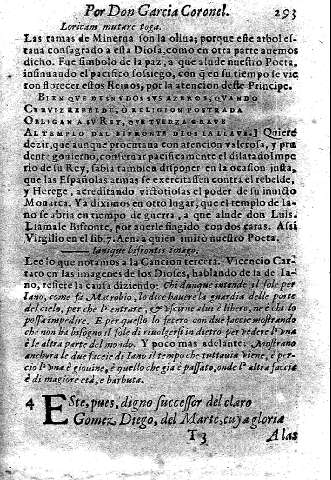 Por Don Garcia Coronel. 293
Loricam mutare toga.
Las ramas de Minerva son la oliua; porque este arbol es-
taua consagrado a esta Diosa, como en otra parte auemos
dicho. Fue simbolo de la paz, a que alude nuestro Poeta,
insinuando el pacifico sossiego, con q̃ en su tiempo se vie
ron florecer estos Reinos, por la atencion deste Principe.
BIEN QUE DESNUDOS SUS AZEROS, QUANDO
CERVIZ REBELDE, O RELIGION POSTRADA
OBLIGAN A SU REY, QUE TUERZA GRAVE
AL TEMPLO DEL BIFRONTE DIOS LA LLAVE.] Quiere
dezir, que aunque procuraua con atencion valerosa, y pru
dente gouierno, conseruar pacificamente el dilatado Impe
rio de su Rey, sabia tambien disponer en la ocasion justa,
que las Españolas armas se exercitassen contra el rebelde,
y Herege, acreditando victoriosas el poder de su inuicto
Monarca. Ya diximos en otro lugar, que el templo de Ia-
no se abria en tiempo de guerra, a que alude don Luis.
Llamale Bifronte, por auerle fingido con dos caras. Assi
Virgilio en el lib. 7. Aenea quien imitò nuestro Poeta.
Ianique bifrontis imago.
Lee lo que notamos a la Cancion tercera. Vicencio Car-
taro en las imagenes de los Dioses, hablando de la de Ia-
no, refiere la causa diziendo: Chi dunque intende il sole per
Iano, come fà Macrobio, lo dice hauere la guardia delle porte
del cielo, per che l'entrare, & vscirne alui è libero, ne è chi lo
possa impedire. E per questo lo fecero con due faccie mostrando
che non ha bisogno il sole di riuolgersi in dietro per vedere l'vna
e le altra parte del mondo. Y poco mas adelante: Mostrano
anchora le due faccie di Iano il tempo che tuttauia viene, è per-
cio l'vna è giouine, è quello che già è passato, onde l'altra faccia
è di magiore età, e barbuta.
4 Este, pues, digno successor del claro
Gomez Diego, del Marte, cuya gloria
T 3 A las